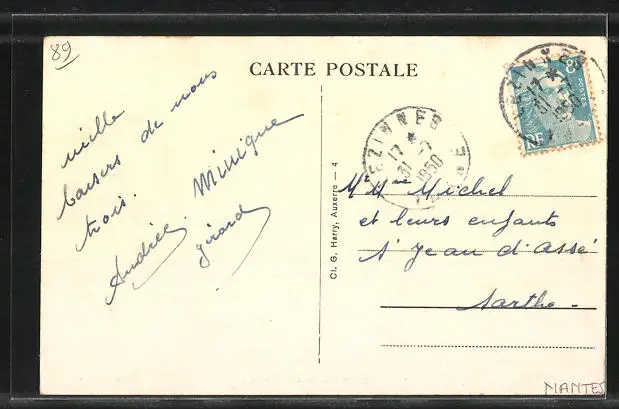 89
CARTE POSTALE
mille
baisers de nous
trois.
Andrée Minique
gérard
Cl. G. Harry, Auxerre — 4
17 *
31 - 7
1950
17 *
31 - 7
1950
RF
Mr Mme Michel
et leurs enfants
St Jean d'Assé
Sarthe -
NANTES